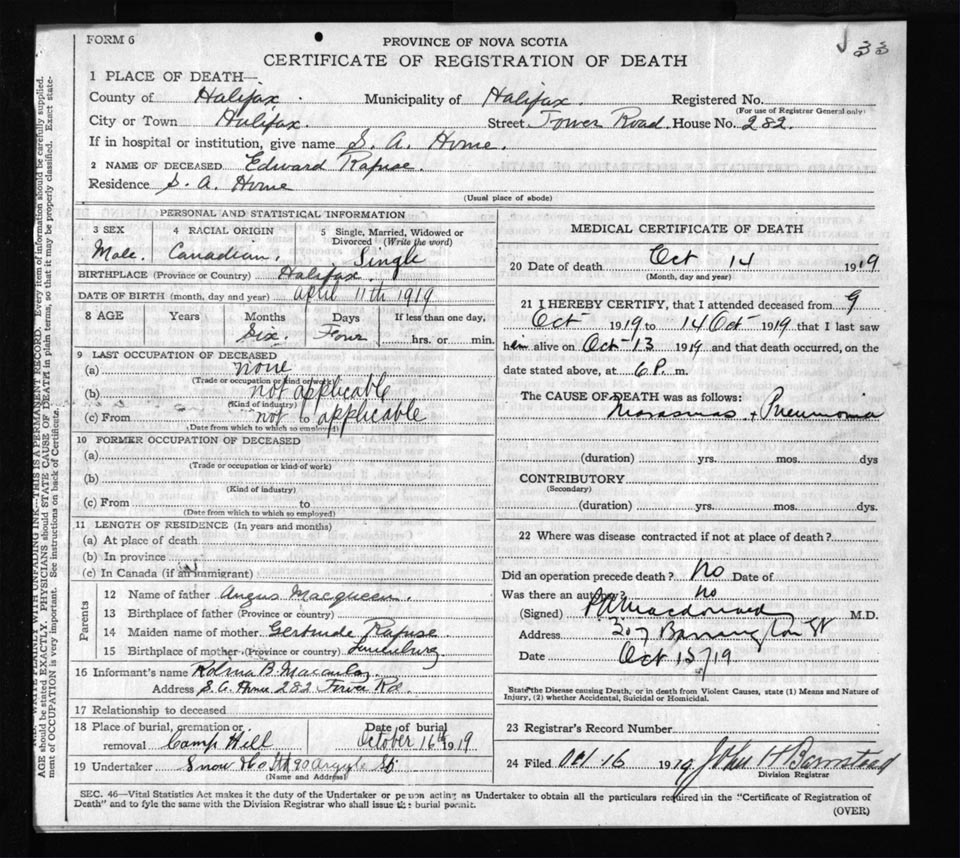 FORM 6
33
PROVINCE OF NOVA SCOTIA
CERTIFICATE OF REGISTRATION OF DEATH
1 PLACE OF DEATH—
County of Halifax. Municipality of Halifax. Registered No.
(For use of Registrar General only)
City or Town Halifax. Street Tower Road. House No. 282.
If in hospital or institution, give name S. A. Home.
2 NAME OF DECEASED Edward Rafuse.
Residence S. A. Home
(Usual place of abode)
PERSONAL AND STATISTICAL INFORMATION
3 SEX 4 RACIAL ORIGIN 5 Single, Married, Widowed or Divorced (Write the word)
Male. Canadian. Single
BIRTHPLACE (Province or Country) Halifax.
DATE OF BIRTH (month, day and year) April 11th 1919
8 AGE Years Months Days If less than one day,
Six. Four hrs. or min.
9 LAST OCCUPATION OF DECEASED
(a) none
(Trade or occupation or kind of work)
(b) not applicable
(Kind of industry)
(c) From not to applicable
(Date from which to which so employed)
10 FORMER OCCUPATION OF DECEASED
(a)
(Trade or occupation or kind of work)
(b)
(Kind of industry)
(c) From to
(Date from which to which so employed)
11 LENGTH OF RESIDENCE (In years and months)
(a) At place of death
(b) In province
(c) In Canada (if an immigrant)
Parents
12 Name of father Angus Macqueen.
13 Birthplace of father (Province or country)
14 Maiden name of mother Gertrude Rafuse
15 Birthplace of mother (Province or country)
16 Informant's name B. Macaulay
Address S. A. Home 282 Tower Rd.
17 Relationship to deceased
18 Place of burial, cremation or removal Camp Hill
Date of burial October 16th 1919
19 Undertaker Snow & Co Ltd 90 Argyle St
(Name and Address)
MEDICAL CERTIFICATE OF DEATH
20 Date of death Oct 14 1919
(Month, day and year)
21 I HEREBY CERTIFY, that I attended deceased from 9
Oct 1919 to 14 Oct 1919 that I last saw
him alive on Oct 13 1919 and that death occurred, on the
date stated above, at 6 P. m.
The CAUSE OF DEATH was as follows:
Marasmus + Pneumonia
(duration) yrs. mos. dys
CONTRIBUTORY
(Secondary)
(duration) yrs. mos. dys.
22 Where was disease contracted if not at place of death?
Did an operation precede death? No Date of
Was there an autopsy? no
(Signed) Macdonald M.D.
Address 207 Barrington St
Date Oct 15/19
State the Disease causing Death, or in death from Violent Causes, state (1) Means and Nature of
Injury, (2) whether Accidental, Suicidal or Homicidal.
23 Registrar's Record Number
24 Filed Oct 16 1919 John H Barnstead
Division Registrar
SEC. 46—Vital Statistics Act makes it the duty of the Undertaker or person acting as Undertaker to obtain all the particulars required in the "Certificate of Registration of
Death" and to fyle the same with the Division Registrar who shall issue the burial permit.
(OVER)
WRITE PLAINLY WITH UNFADING INK—THIS IS A PERMANENT RECORD. Every item of information should be carefully supplied.
AGE should be stated EXACTLY. PHYSICIANS should STATE CAUSE OF DEATH in plain terms, so that it may be properly classified. Exact state-
ment of OCCUPATION is very important. See instructions on back of Certificate.